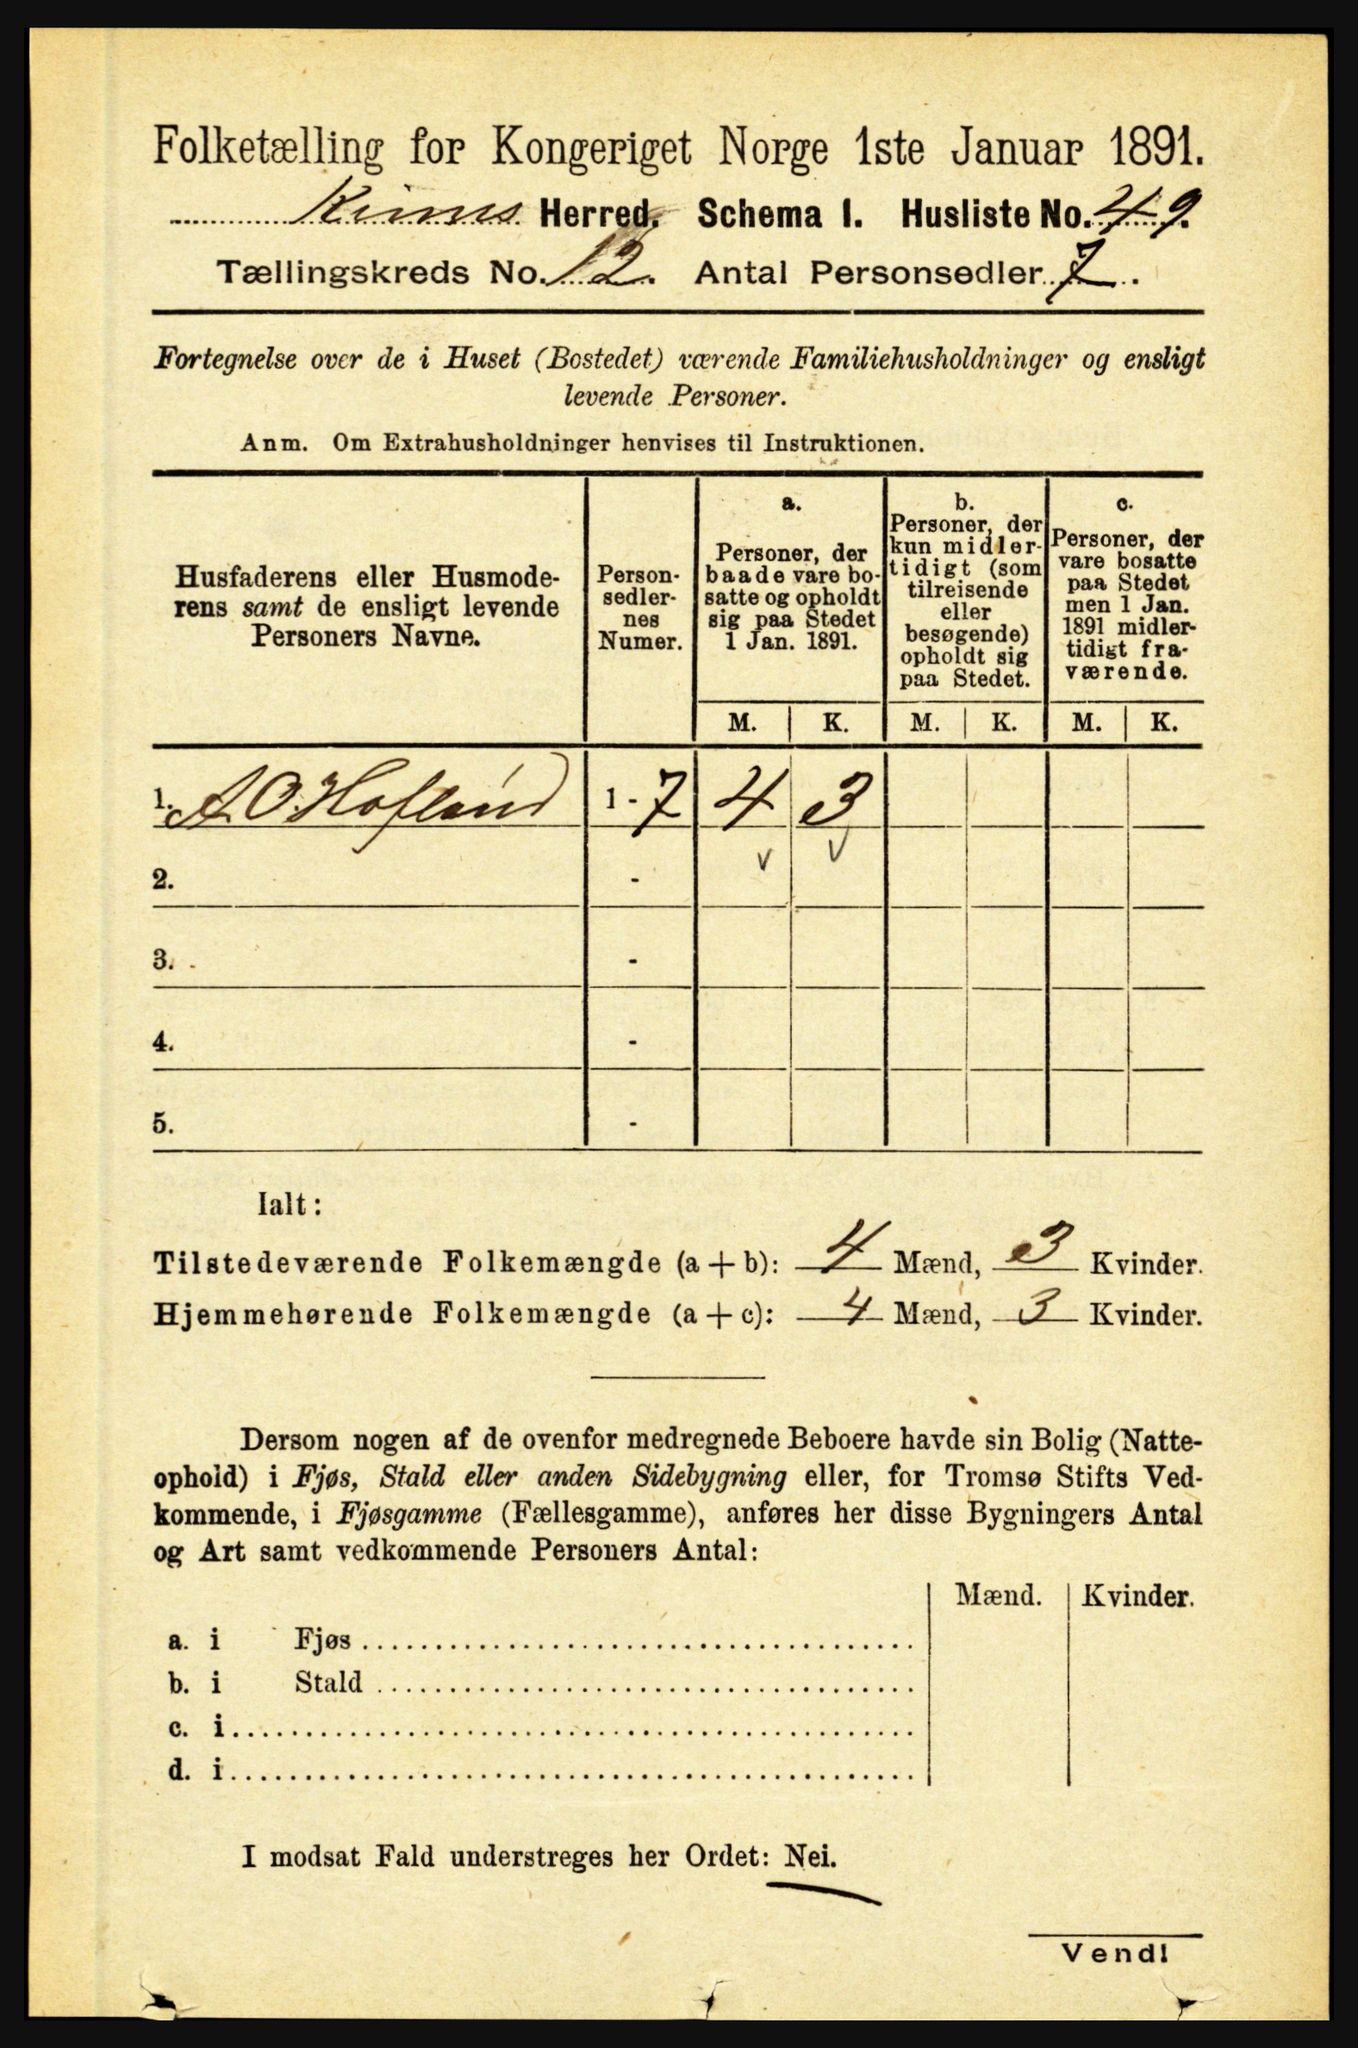 Folketælling for Kongeriget Norge 1ste Januar 1891.
Kinns Herred. Schema I. Husliste No. 49.
Tællingskreds No. 12. Antal Personsedler 7.
Fortegnelse over de i Huset (Bostedet) værende Familiehusholdninger og ensligt
levende Personer.
Anm. Om Extrahusholdninger henvises til Instruktionen.
Husfaderens eller Husmode-
rens samt de ensligt levende
Personers Navne.
Person-
sedler-
nes
Numer.
a.
Personer, der
baade vare bo-
satte og opholdt
sig paa Stedet
1 Jan. 1891.
b.
Personer, der
kun midler-
tidigt (som
tilreisende
eller
besøgende)
opholdt sig
paa Stedet.
c.
Personer, der
vare bosatte
paa Stedet
men 1 Jan.
1891 midler-
tidigt fra-
værende.
M. K. M. K. M. K.
1. A O Hofland 1 - 7 4 3
2. -
3. -
4. -
5. -
Ialt:
Tilstedeværende Folkemængde (a + b): 4 Mænd, 3 Kvinder.
Hjemmehørende Folkemængde (a + c): 4 Mænd, 3 Kvinder.
Dersom nogen af de ovenfor medregnede Beboere havde sin Bolig (Natte-
ophold) i Fjøs, Stald eller anden Sidebygning eller, for Tromsø Stifts Ved-
kommende, i Fjøsgamme (Fællesgamme), anføres her disse Bygningers Antal
og Art samt vedkommende Personers Antal:
Mænd. Kvinder.
a. i Fjøs
b. i Stald
c. i
d. i
I modsat Fald understreges her Ordet: Nei.
Vend!